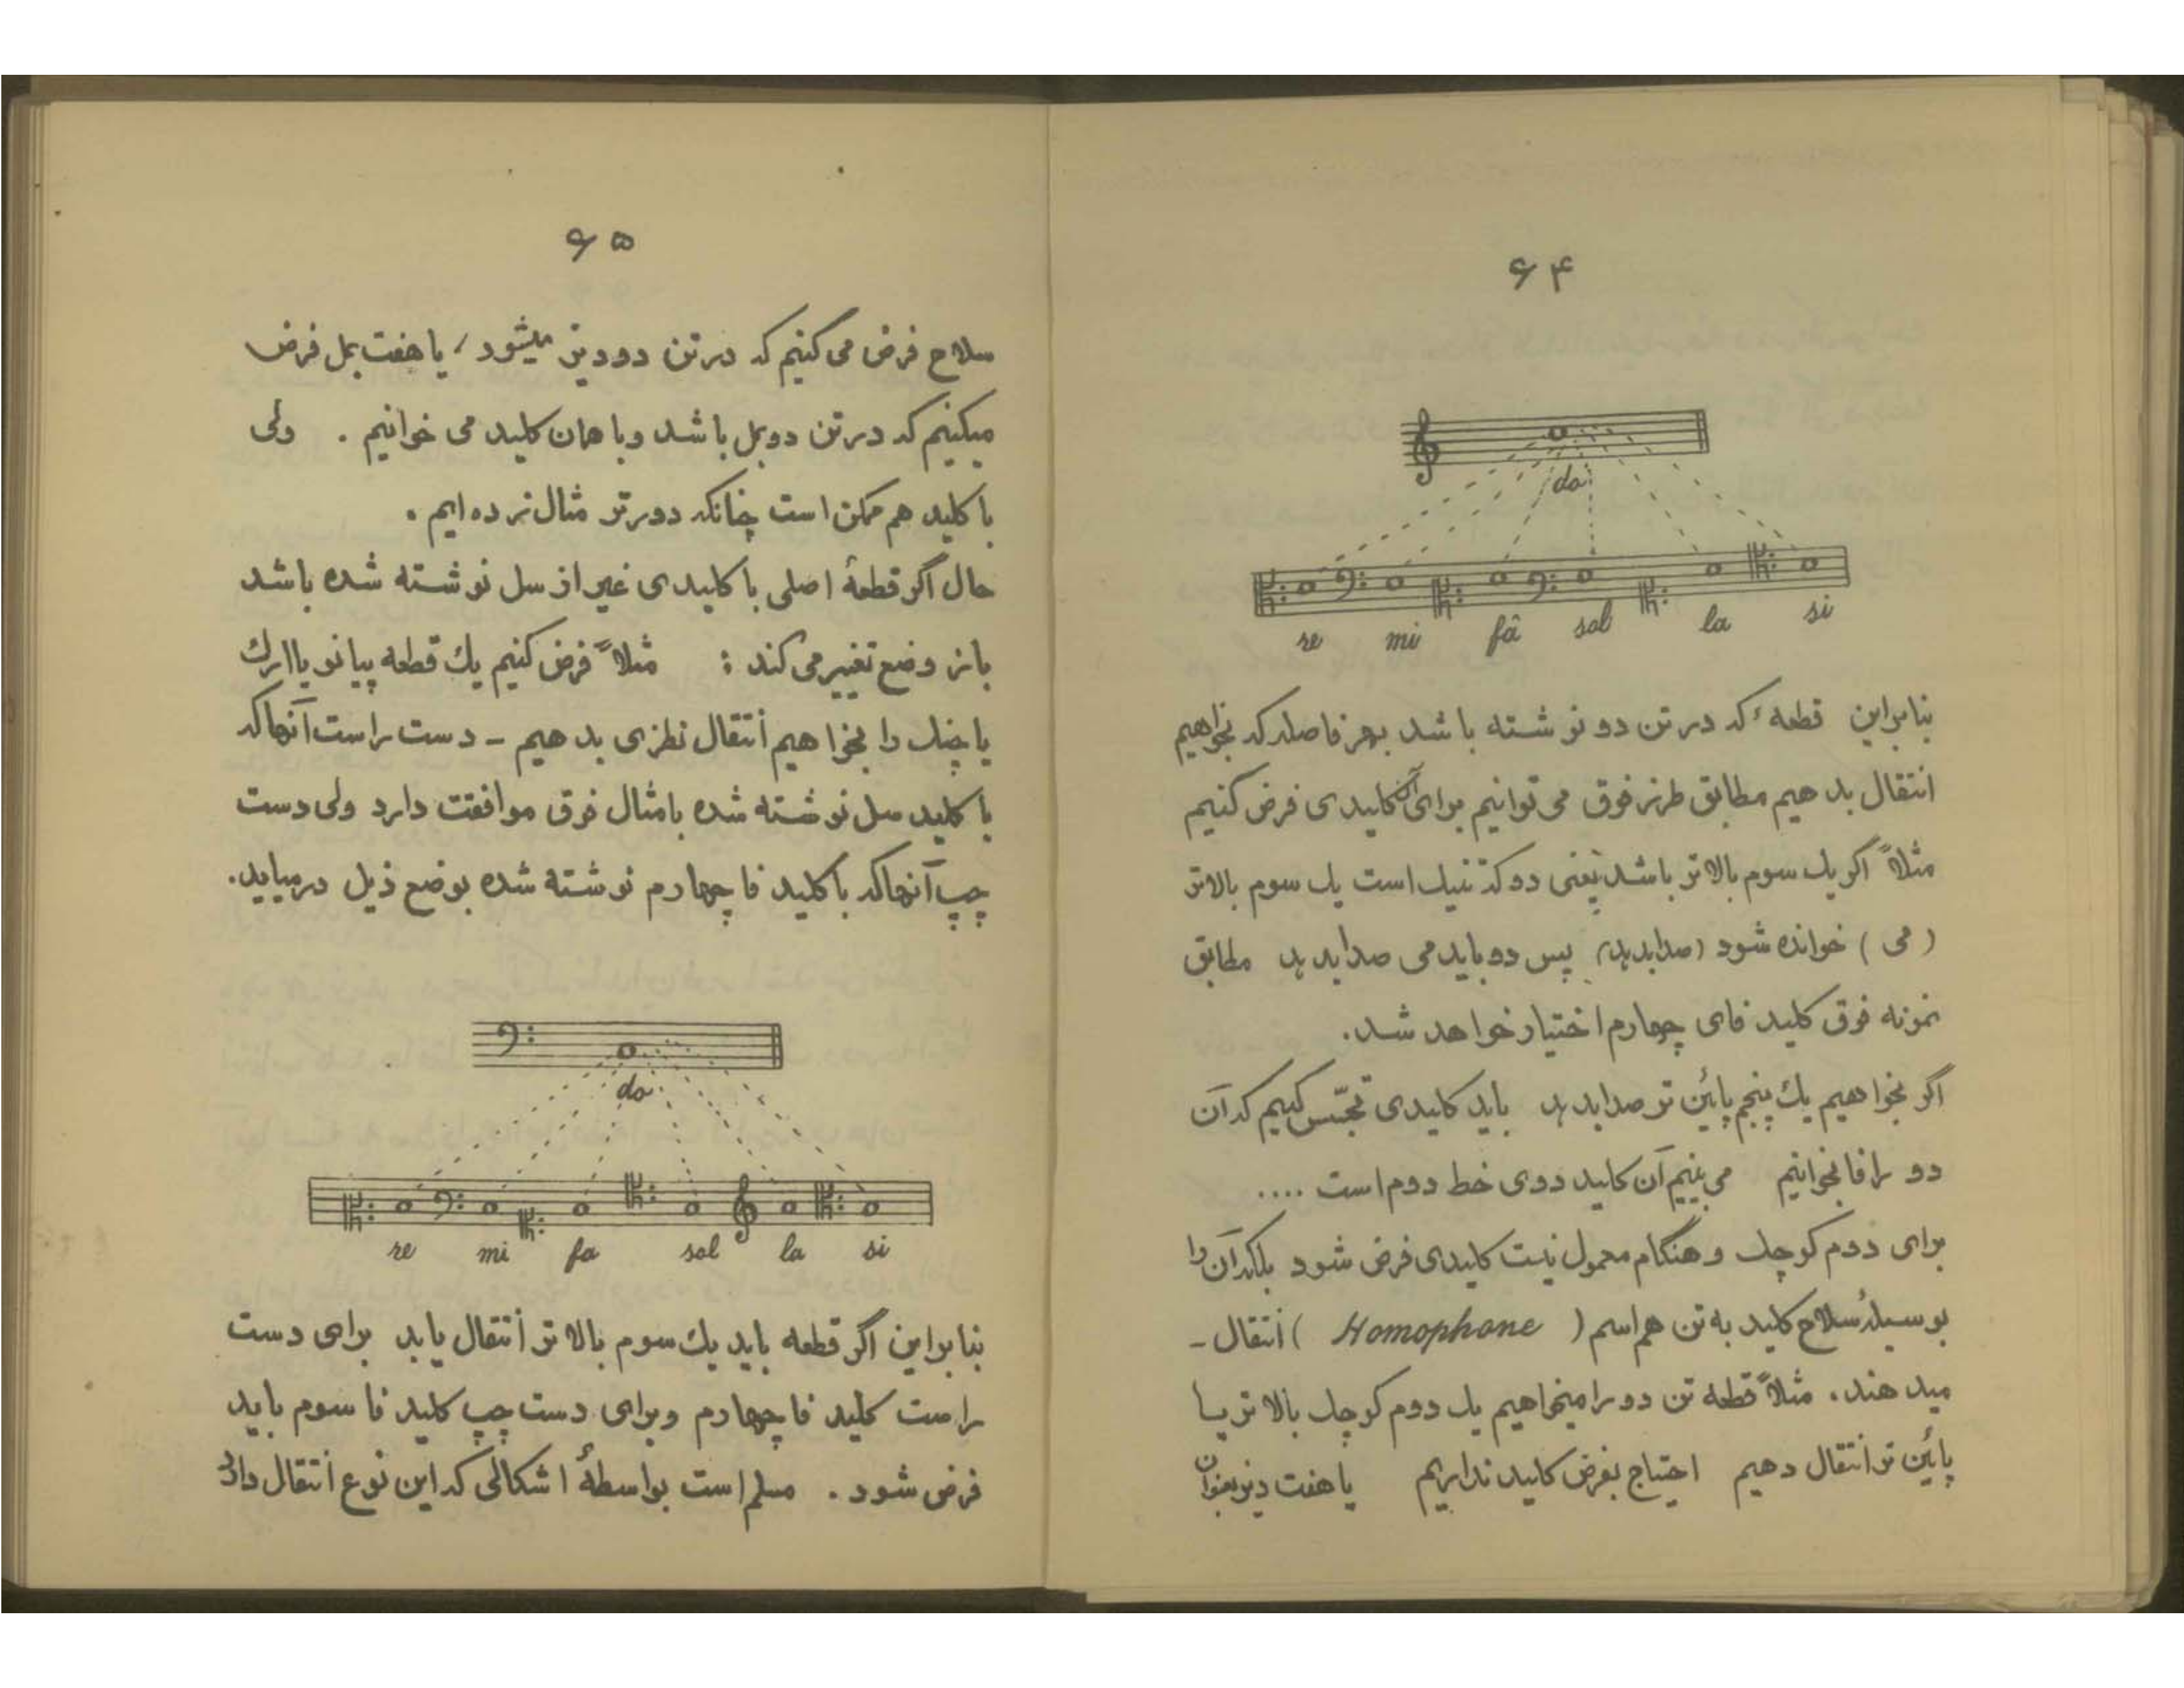 ۶۴
do
re mi fâ sol la si
بنابراین قطعهٔ که در تن دو نوشته باشد بهر فاصله که بخواهیم
انتقال بدهیم مطابق طرز فوق می توانیم برای آن کلیدی فرض کنیم
مثلاً اگر یک سوم بالاتر باشد یعنی دو که تنیک است یک سوم بالاتر
( می ) خوانده شود (صدا بدهد) پس دو باید می صدا بدهد مطابق
نمونه فوق کلید فای چهارم اختیار خواهد شد.
اگر بخواهیم یک پنجم پائین تر صدا بدهد باید کلیدی تجسّس کنیم که آن
دو را فا بخوانیم می بینیم آن کلید دوی خط دوم است ....
برای دوم کوچک و هنگام معمول نیست کلیدی فرض شود بلکه آن را
بوسیلهٔ سلاح کلید به تن هم اسم ( Homophone ) انتقال -
میدهند. مثلاً قطعه تن دو را میخواهیم یک دوم کوچک بالاتر یا
پائین تر انتقال دهیم احتیاج بفرض کلید نداریم یا هفت دیز بعنوان
۶۵
سلاح فرض می کنیم که در تن دو دیز میشود ، یا هفت بمل فرض
میکنیم که در تن دو بمل باشد و با همان کلید می خوانیم . ولی
با کلید هم ممکن است چنانکه دورتر مثال زده ایم .
حال اگر قطعهٔ اصلی با کلیدی غیر از سل نوشته شده باشد
باز وضع تغییر می کند : مثلاً فرض کنیم یک قطعه پیانو یا ارک
یا چنک را بخواهیم انتقال نظری بدهیم - دست راست آنها که
با کلید سل نوشته شده با مثال فوق موافقت دارد ولی دست
چپ آنها که با کلید فا چهارم نوشته شده بوضع ذیل درمیاید.
do
re mi fa sol la si
بنابراین اگر قطعه باید یک سوم بالاتر انتقال یابد برای دست
راست کلید فا چهارم و برای دست چپ کلید فا سوم باید
فرض شود . مسلم است بواسطهٔ اشکالی که این نوع انتقال دارد